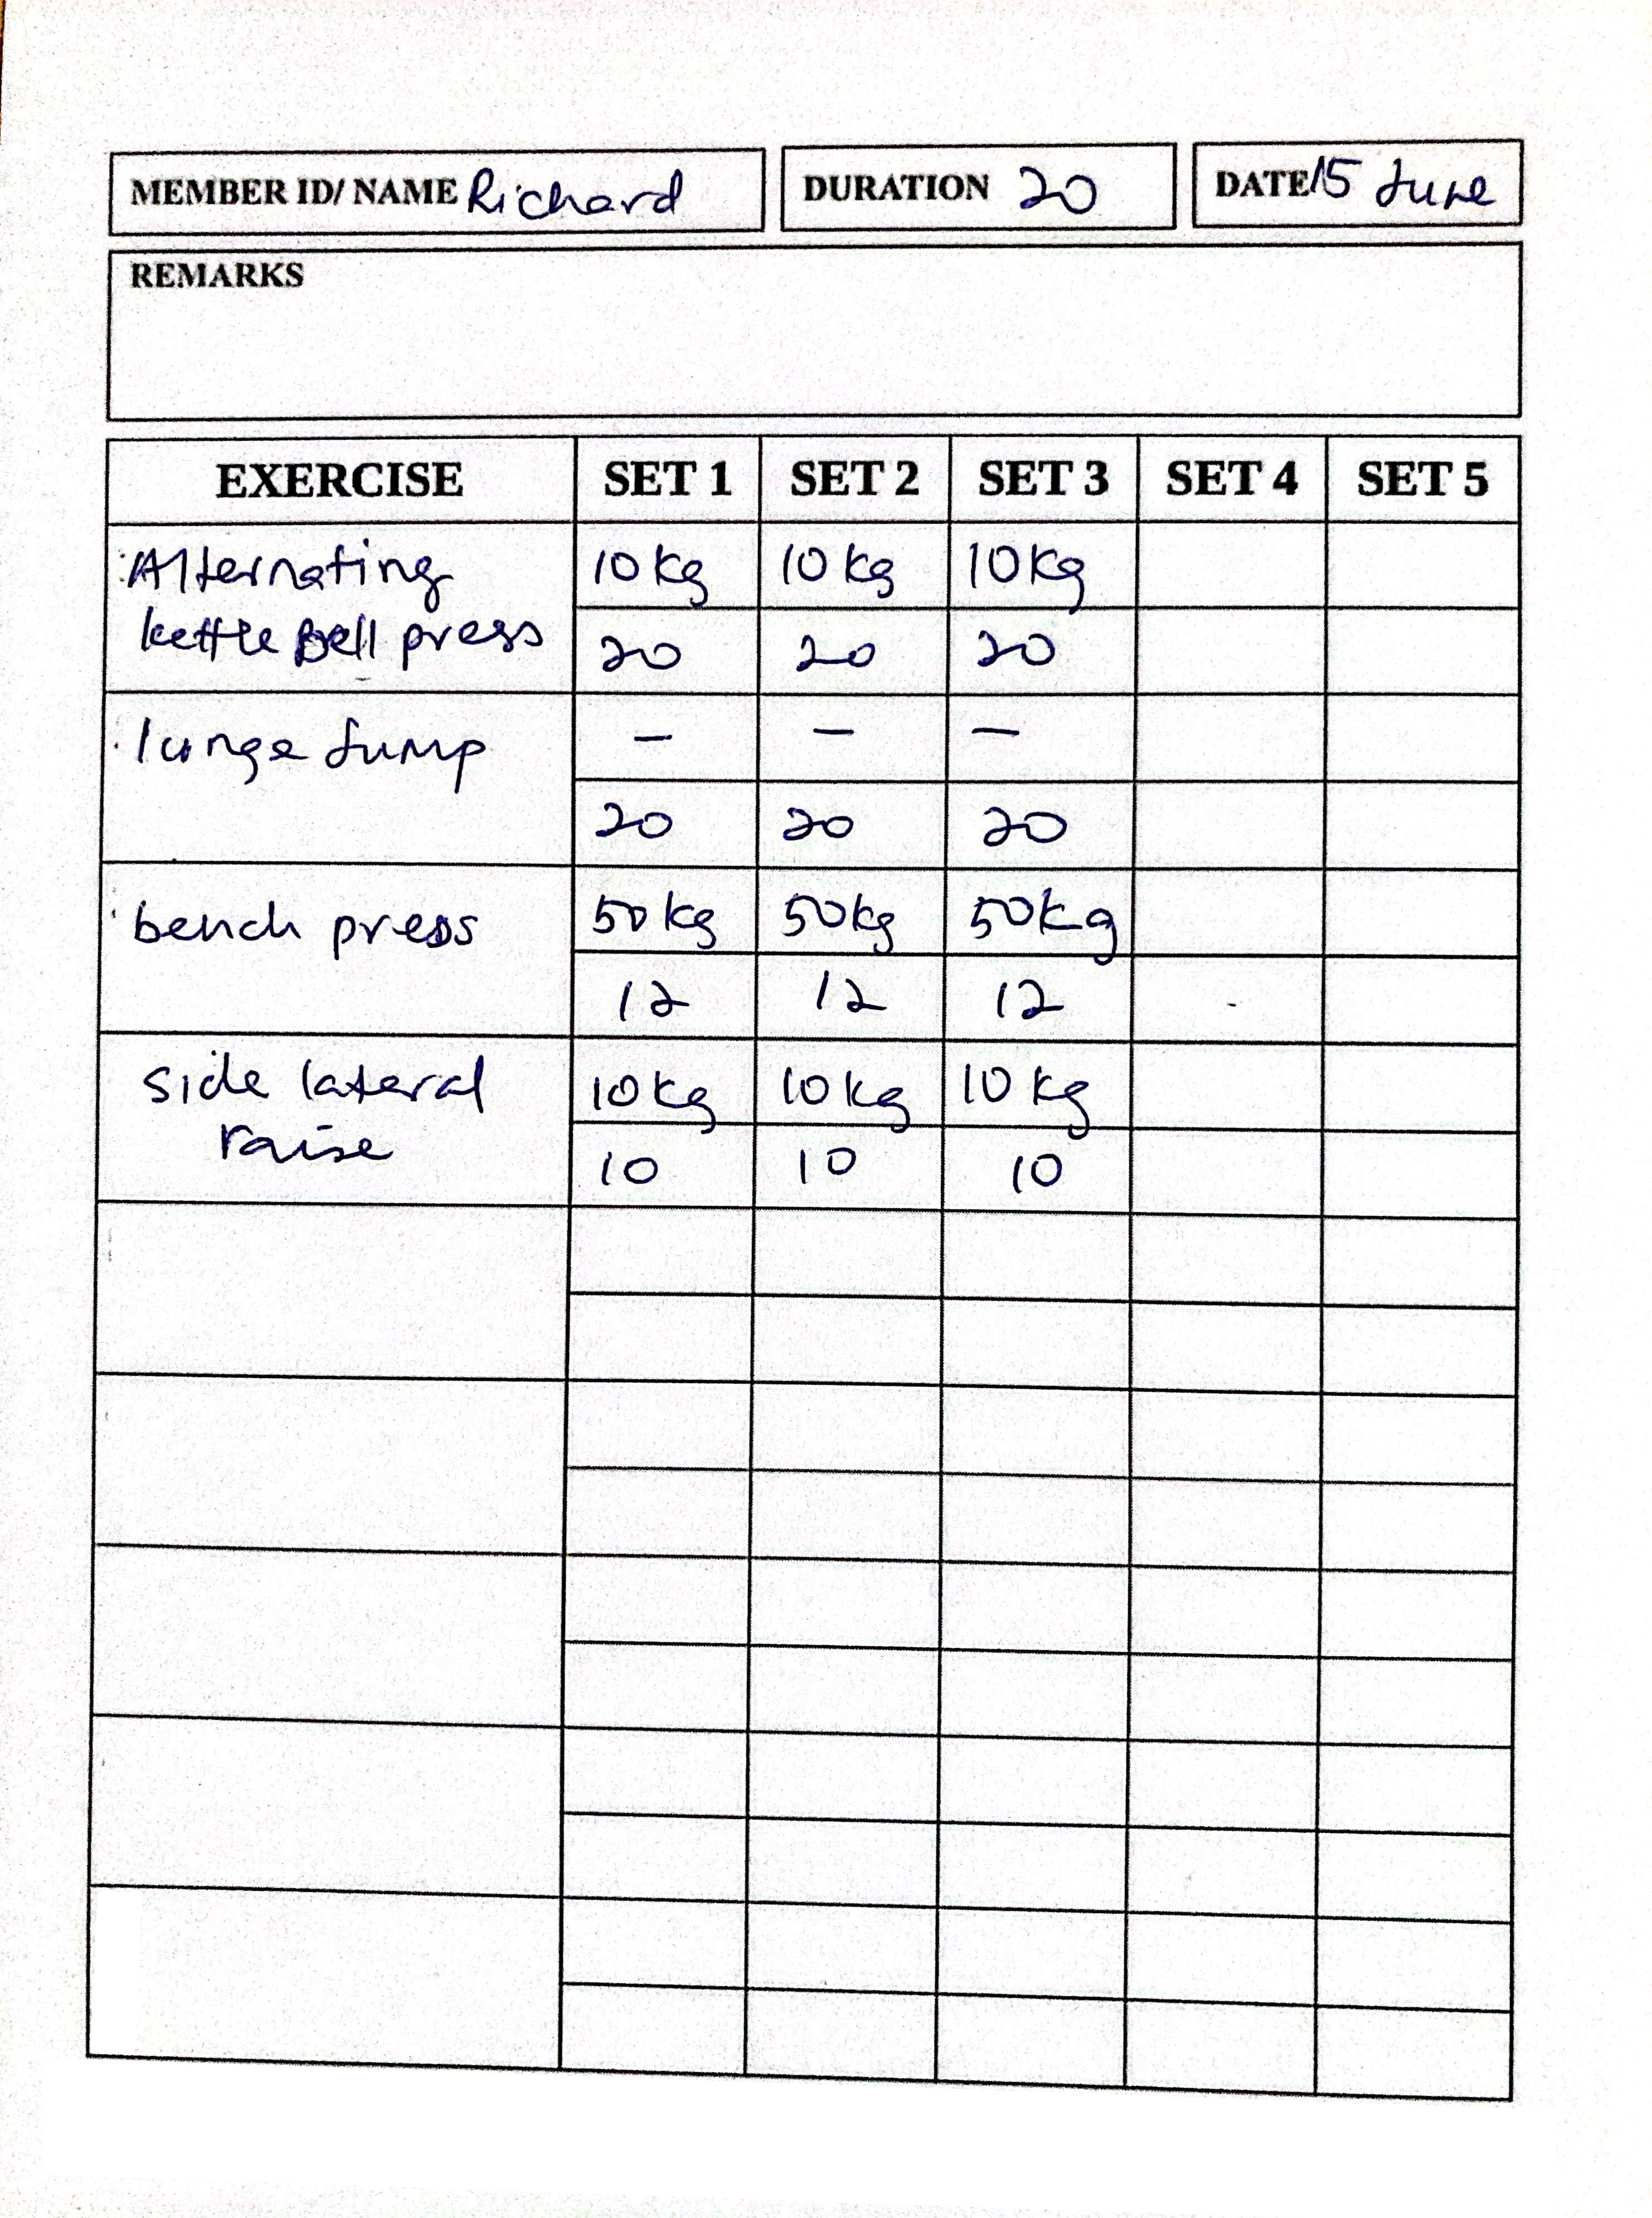 MEMBER ID/ NAME Richard DURATION 20 DATE 15 June
REMARKS
EXERCISE SET 1 SET 2 SET 3 SET 4 SET 5
Alternating 10kg 10kg 10kg
kettle Bell press 20 20 20
lunge Jump - - -
20 20 20
bench press 50kg 50kg 50kg
12 12 12
side lateral 10kg 10kg 10kg
raise 10 10 10